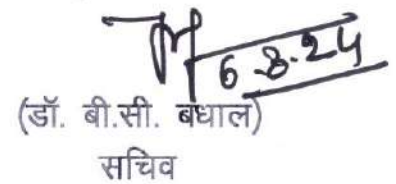 6-8-24
(डॉ. बी.सी. बधाल)
सचिव